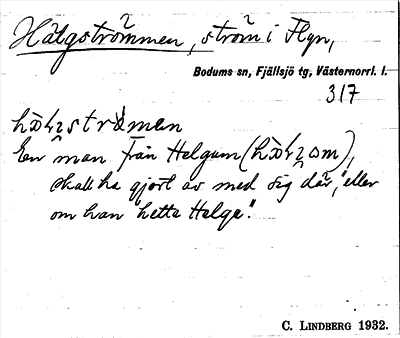 Hälgströmmen, ström i Flyn,
Bodums sn, Fjällsjö tg, Västernorrl. l.
317
En man från Helgum (
skall ha gjort av med sig där, "eller
om han hette Helge".
C. LINDBERG 1932.